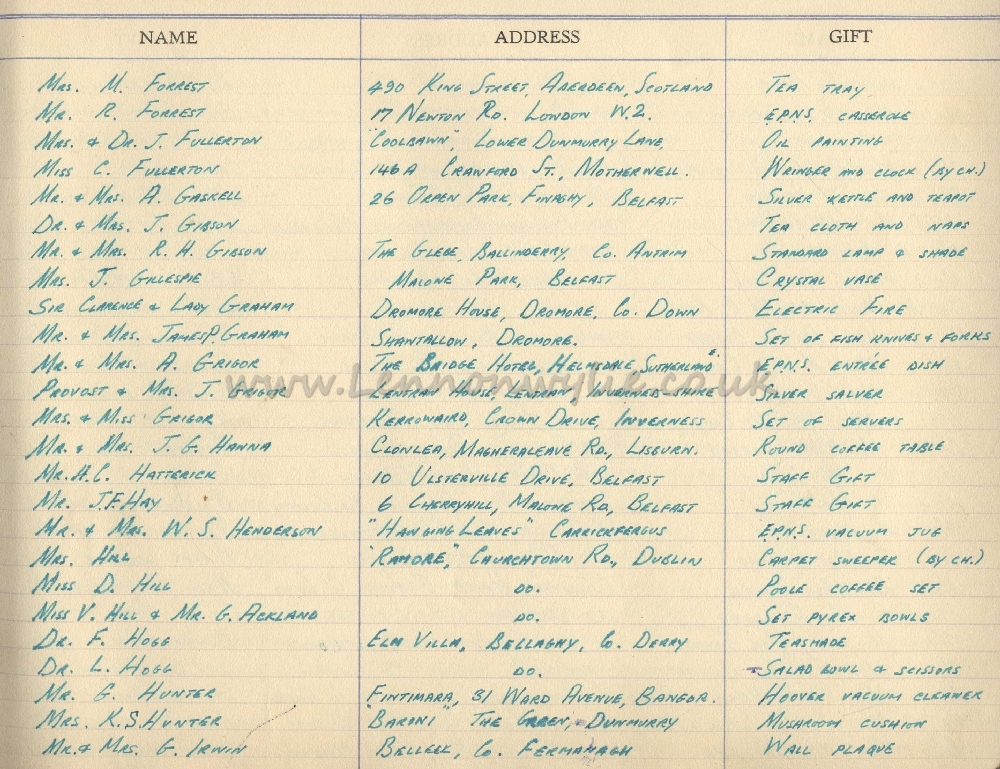 NAME ADDRESS GIFT
Mrs. M. Forrest 490 King Street, Aberdeen, Scotland Tea tray
Mr. R. Forrest 17 Newton Rd. London W.2. E.P.N.S. casserole
Mrs. & Dr. J. Fullerton "Coolbawn", Lower Dunmurry Lane, Oil painting
Miss C. Fullerton 146A Crawford St., Motherwell. Wringer and clock (by ch.)
Mr. & Mrs. A. Gaskell 26 Orpen Park, Finaghy, Belfast Silver kettle and teapot
Dr. & Mrs. J. Gibson Tea cloth and naps
Mr. & Mrs. R. H. Gibson The Glebe, Ballinderry, Co. Antrim Standard lamp & shade
Mrs. J. Gillespie Malone Park, Belfast Crystal vase
Sir Clarence & Lady Graham Dromore House, Dromore, Co. Down Electric Fire
Mr. & Mrs. James P. Graham Shantallow, Dromore. Set of fish knives & forks
Mr. & Mrs. A. Grigor The Bridge Hotel, Helmsdale, Sutherland E.P.N.S. entrée dish
www.Lennonwylie.co.uk
Provost & Mrs. J. Grigor Lentran House, Lentran, Inverness-shire Silver salver
Mrs. & Miss Grigor Kerrowaird, Crown Drive, Inverness Set of servers
Mr. & Mrs. J. G. Hanna Clonlea, Magheraleave Rd., Lisburn. Round coffee table
Mr. H. C. Hatterick 10 Ulsterville Drive, Belfast Staff Gift
Mr. J. F. Hay 6 Cherryhill, Malone Rd, Belfast Staff Gift
Mr. & Mrs. W. S. Henderson "Hanging Leaves" Carrickfergus E.P.N.S. vacuum jug
Mrs. Hill "Ramore", Churchtown Rd., Dublin Carpet sweeper (by ch.)
Miss D. Hill do. Poole coffee set
Miss V. Hill & Mr. G. Ackland do. Set pyrex bowls
Dr. F. Hogg Elm Villa, Bellaghy, Co. Derry Teasmade
Dr. L. Hogg do. Salad bowl & scissors
Mr. G. Hunter Fintimara, 31 Ward Avenue, Bangor. Hoover vacuum cleaner
Mrs. K. S. Hunter "Baroni" The Green, Dunmurry Mushroom cushion
Mr. & Mrs. G. Irwin Belleek, Co. Fermanagh Wall plaque